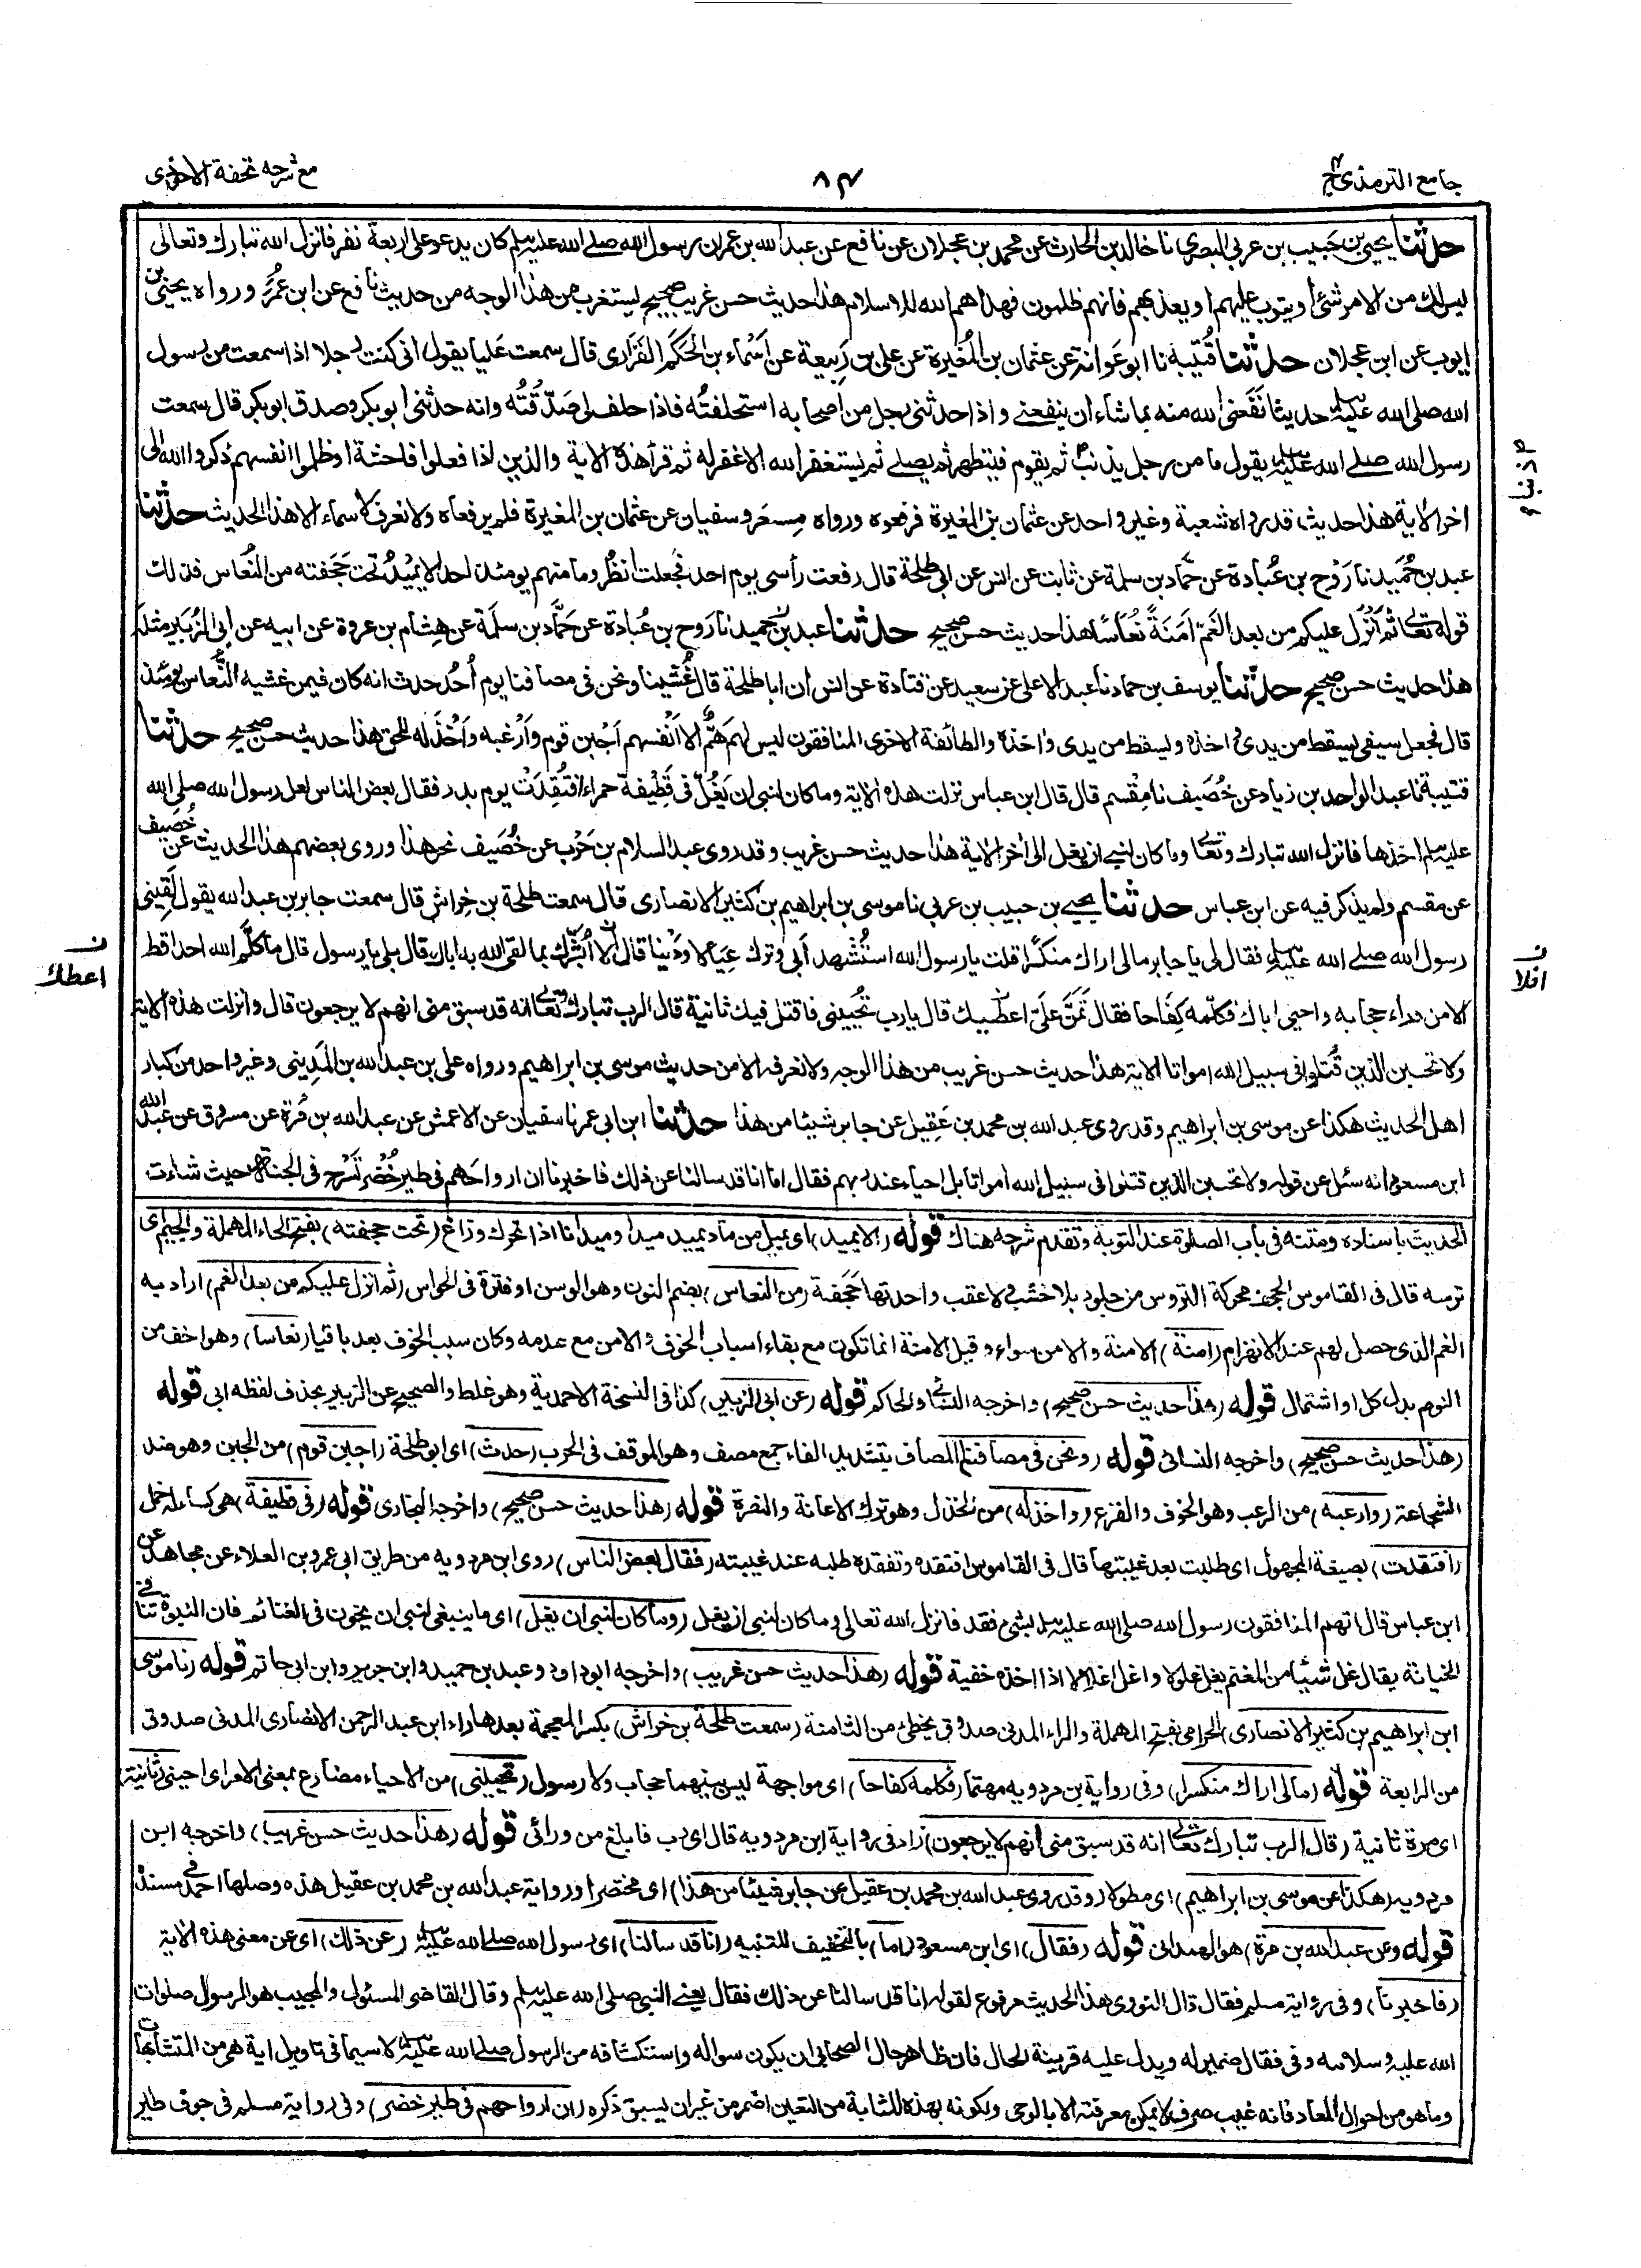 جامع الترمذى ج ٤
٨٤
مع شرحه تحفة الاحوذى
حدثنا يحيى بن حَبيب بن عربى البصرى نا خالد بن الحارث عن محمد بن عجلان عن نافع عن عبد الله بن عمر ان رسول الله صلے الله عليه وسلم كان يدعو على اربعة نفر فانزل الله تبارك وتعالى
ليس لك من الامر شئ او يتوب عليهم او يعذبهم فانهم ظلمون فهداهم الله للاسلام هذا حديث حسن غريب صحيح يستغرب من هذا الوجه من حديث نافع عن ابن عُمَر ورواه يحيى بن
ايوب عن ابن عجلان حدثنا قُتيبة نا ابو عَوانة عن عثمان بن المُغيرة عن على بن رَبيعة عن اَسْماء بن الحَكَم الفَزارى قال سمعت عَليا يقول انى كنت رجلا اذا سمعت من رسول
الله صلى الله عليه وسلم حديثا نَفَعَنى الله منه بما شاء ان ينفعنے واذا حدثنى رجل من اصحابه استحلفتُه فاذا حلف لى صَدّقتُه وانه حدثنى ابو بكر وصدق ابو بكر قال سمعت
رسول الله صلے الله عليه وسلم يقول ما من رجل يذنب ثم يقوم فيتطهر ثم يصلے ثم يستغفر الله الا غفر له ثم قرأ هذه الاية والذين اذا فعلوا فاحشة او ظلموا انفسهم ذكروا الله الى
اخر الاية هذا حديث قد رواه شعبة وغير واحد عن عثمان بن المغيرة فرفعوه ورواه مِسعَر وسفيان عن عثمان بن المغيرة فلم يرفعاه ولا نعرف لاسماء الا هذا الحديث حدثنا
عبد بن حُمَيد نا رَوْح بن عُبادة عن حمّاد بن سلمة عن ثابت عن انس عن ابى طلحة قال رفعت رأسى يوم احد فجعلت انظُر وما منهم يومئذ احد الا يميْدُ تحت حَجَفته من النُعاس فذلك
قوله تعالى ثم اَنْزَل عليكم من بعد الغَمّ اَمَنَةً نُعاسًا هذا حديث حسن صحيح حدثنا عبد بن حميد نا رَوح بن عُبادة عن حَمَّاد بن سلَمَة عن هِشام بن عروة عن ابيه عن ابى الزُبَير مثله
هذا حديث حسن صحيح حدثنا يوسف بن حماد نا عبد الاعلى عن سعيد عن قتادة عن انس ان ابا طلحة قال غُشينا ونحن فى مصافنا يوم اُحُد حدث انه كان فيمن غشيه النُّعاس يومئذ
قال فجعل سيفى يسقط من يدى واخذه ويسقط من يدى واخذه والطائفة الاخرى المنافقون ليس لهم هَمٌّ الا اَنْفسهم اَجْبن قوم واَرْغَبه واَخْذَله للحق هذا حديث حسن صحيح حدثنا
قتيبة نا عبد الواحد بن زياد عن خُصَيف نا مِقْسم قال قال ابن عباس نزلت هذه الاية وما كان لنبى ان يَغُلّ فى قَطِيْفة حمراء افْتُقِدَتْ يوم بدر فقال بعض الناس لعل رسول الله صلى الله
عليه وسلم اخذها فانزل الله تبارك وتعالى وما كان لنبے ان يغل الى اخر الاية هذا حديث حسن غريب وقد روى عبد السلام بن حَرْب عن خُصَيف نحو هذا وروى بعضهم هذا الحديث عن خُصَيف
عن مقسم ولم يذكر فيه عن ابن عباس حدثنا يحيے بن حبيب بن عربى نا موسى بن ابراهيم بن كثير الانصارى قال سمعت طلحة بن خِراش قال سمعت جابر بن عبد الله يقول لَقِينى
رسول الله صلے الله عليه وسلم فقال لى يا جابر مالى اراك منكسًرا قلت يا رسول الله استُشْهد اَبى وترك عِيَالا ودَيْنا قال الا اُبَشّرك بما لقى الله به اباك قال بلى يا رسول قال ما كلَّم الله احدا قط
الا من وراء حجابه واحيى اباك فكلّمه كِفَاحا فقال تَمَنَّ علَىّ اعطيك قال يارب تُحييْنى فاقتل فيك ثانيةً قال الرب تبارك وتعالى انه قد سبق منى انهم لا يرجعون قال وانزلت هذه الاية
ولا تحسبن الذين قُتلوا فى سبيل الله امواتا الاية هذا حديث حسن غريب من هذا الوجه ولا نعرفه الا من حديث موسى بن ابراهيم ورواه على بن عبد الله بن المَدِينى وغير واحد من كبار
اهل الحديث هكذا عن موسى بن ابراهيم وقد روى عبد الله بن محمد بن عَقِيل عن جابر شيئا من هذا حدثنا ابن ابى عمر نا سفيان عن الاعمش عن عبد الله بن مُرة عن مسروق عن عبد الله
ابن مسعود انه سئل عن قوله ولا تحسبن الذين قتلوا فى سبيل الله امواتا بل احياء عند ربهم فقال اما انا قد سالنا عن ذلك فاخبرنا ان ارواحَهم فى طير خُضْر تَسْرح فى الجنة حيث شاءت
الحديث باسناده ومتنه فى باب الصلوة عند التوبة وتقدم شرحه هناك قوله (الا يميد) اى يميل من ماد يميد ميدا وميدانا اذا تحرك وزاغ (تحت حجفته) بفتح الحاء المهملة والجيم اى
ترسه قال فى القاموس الحجف محركة التروس من جلود بلا خشب ولا عقب واحدتها حَجَفة (من النعاس) بضم النون وهو الوسن او فترة فى الحواس (ثم انزل عليكم من بعد الغم) اراد به
الغم الذى حصل لهم عند الانهزام (امنة) الامنة والامن سواء وقيل الامنة انما تكون مع بقاء اسباب الخوف والامن مع عدمه وكان سبب الخوف بعد باقيا (نعاسا) وهو اخف من
النوم بدل كل او اشتمال قوله (هذا حديث حسن صحيح) واخرجه النسائى والحاكم قوله (عن ابى الزبير) كذا فى النسخة الاحمدية وهو غلط والصحيح عن الزبير بحذف لفظه ابى قوله
(هذا حديث حسن صحيح) واخرجه النسائى قوله (ونحن فى مصافنا) المصاف بتشديد الفاء جمع مصف وهو الموقف فى الحرب (حدث) اى ابو طلحة (اجبن قوم) من الجبن وهو ضد
الشجاعة (وارعبه) من الرعب وهو الخوف والفزع (واخذله) من الخذل وهو ترك الاعانة والنصرة قوله (هذا حديث حسن صحيح) واخرجه البخارى قوله (فى قطيفة) هى كساء له خمل
(افتقدت) بصيغة المجهول اى طلبت بعد غيبتها قال فى القاموس افتقده وتفقده طلبه عند غيبته (فقال بعض الناس) روى ابن مردويه من طريق ابى عمرو بن العلاء عن مجاهد عن
ابن عباس قال اتهم المنافقون رسول الله صلى الله عليه وسلم بشئ فقد فانزل الله تعالى وما كان لنبى ان يغل (وما كان لنبى ان يغل) اى ما ينبغى لنبى ان يخون فى الغنائم فان النبوة تنافى
الخيانة يقال غل شيئا من المغنم يغل غلولا واغل اغلالا اذا اخذه خفية قوله (هذا حديث حسن غريب) واخرجه ابو داود وعبد بن حميد وابن جرير وابن ابى حاتم قوله (نا موسى
ابن ابراهيم بن كثير الانصارى) الحرامى بفتح المهملة والراء المدنى صدوق يخطئ من الثامنة (سمعت طلحة بن خراش) بكسر المعجمة بعدها راء ابن عبد الرحمن الانصارى المدنى صدوق
من الرابعة قوله (مالى اراك منكسرا) وفى رواية بن مردويه مهتما (فكلمه كفاحا) اى مواجهة ليس بينهما حجاب ولا رسول (تحيينى) من الاحياء مضارع بمعنى الامر اى احينى (ثانية)
اى مرة ثانية (قال الرب تبارك تعالى انه قد سبق منى انهم لا يرجعون) زاد فى رواية ابن مردويه قال اى رب فابلغ من ورائى قوله (هذا حديث حسن غريب) واخرجه ابن
مردويه (هكذا عن موسى بن ابراهيم) اى مطولا (وقد روى عبد الله بن محمد بن عقيل عن جابر شيئا من هذا) اى مختصرا ورواية عبد الله بن محمد بن عقيل هذه وصلها احمد فى مسنده
قوله (وعن عبد الله بن مرة) هو الهمدانى قوله (فقال) اى ابن مسعود (اما) بالتخفيف للتنبيه (انا قد سالنا) اى رسول الله صلے الله عليه وسلم (عن ذلك) اى عن معنى هذه الاية
(فاخبرنا) وفى رواية مسلم فقال قال النووى هذا الحديث مرفوع لقوله انا قد سالنا عن ذلك فقال يعنے النبى صلى الله عليه وسلم وقال القاضى المسئول والمجيب هو الرسول صلوات
الله عليه وسلامه وفى فقال ضمير له ويدل عليه قرينة الحال فان ظاهر حال الصحابى ان يكون سواله واستكشافه من الرسول صلے الله عليه وسلم لا سيما فى تاويل اية هى من المتشابهات
وما هو من احوال المعاد فانه غيب صرف لا يمكن معرفته الا بالوحى ولكونه بهذه المثابة من التعين اضمر من غير ان يسبق ذكره (ان ارواحهم فى طير خضر) وفى رواية مسلم فى جوف طير
ن
افلا
ن
اعطك